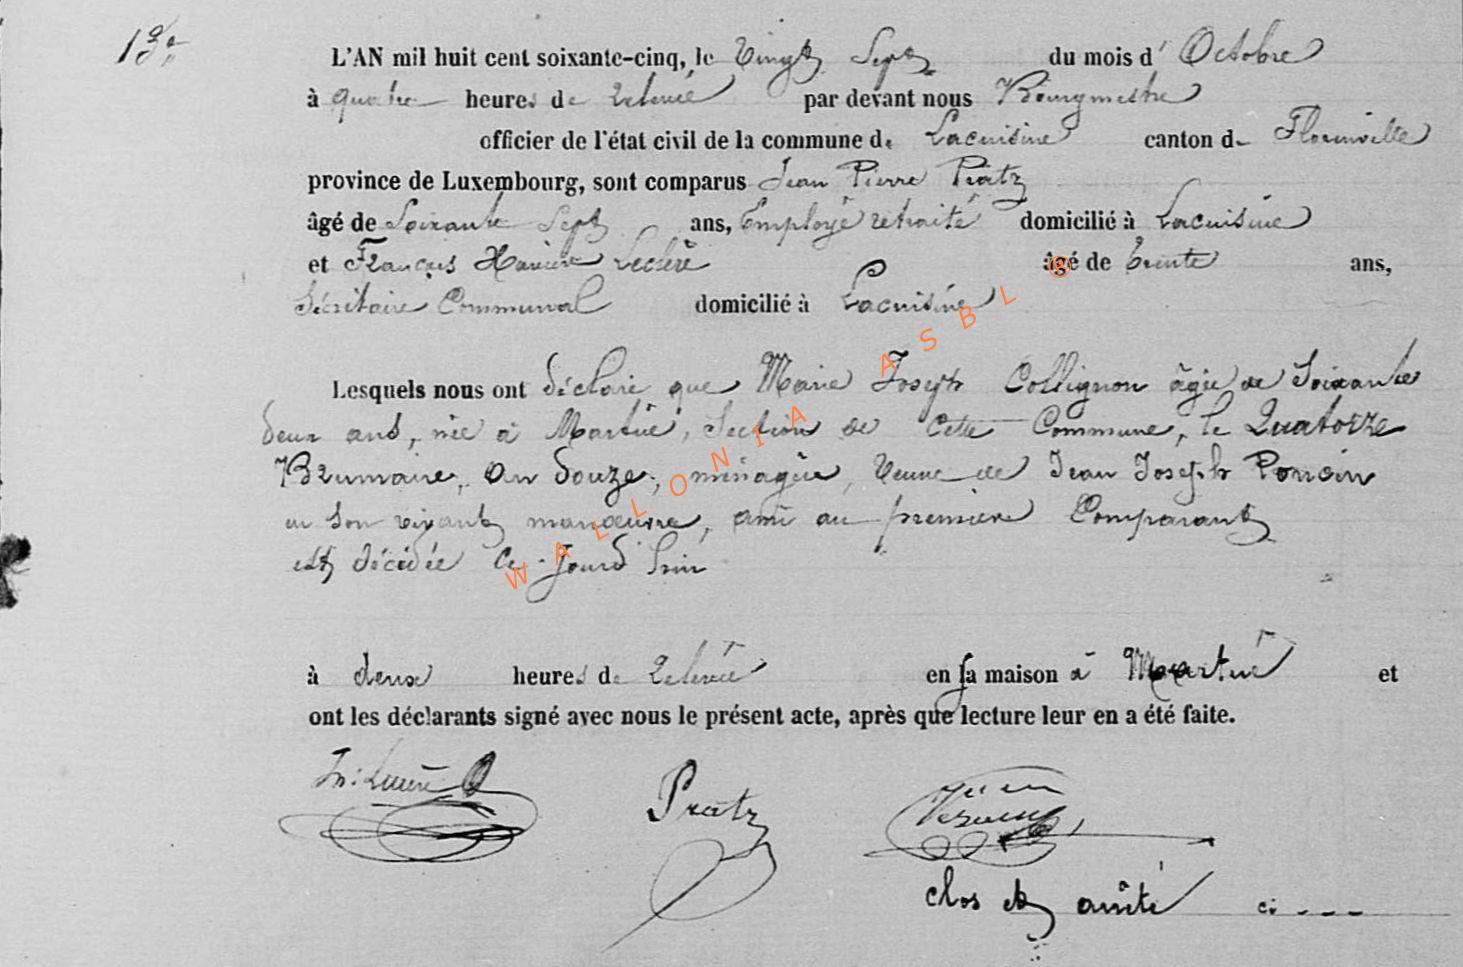 13e
L'AN mil huit cent soixante-cinq, le Vingt Sept du mois d' Octobre
à quatre heures de relevée par devant nous Bourgmestre
officier de l'état civil de la commune de Lacuisine canton de Florenville
province de Luxembourg, sont comparus Jean Pierre Pratz
âgé de Soixante Sept ans, Employé retraité domicilié à Lacuisine
et François Xavier Leclère âgé de trente ans,
Sécrétaire Communal domicilié à Lacuisine
Lesquels nous ont déclaré que Marie Joseph Collignon âgée de Soixante
deux ans, née à Martué, Section de Cette Commune, le Quatorze
Brumaire, an douze, ménagère, Veuve de Jean Joseph Poncin
en son vivant manœuvre, ami au premier Comparant
est décédée Ce Jourd'hui
à deux heures de relevée en sa maison à Martué et
ont les déclarants signé avec nous le présent acte, après que lecture leur en a été faite.
Pratz
clos et arrêté ci ---
WALLONIA ASBL ©